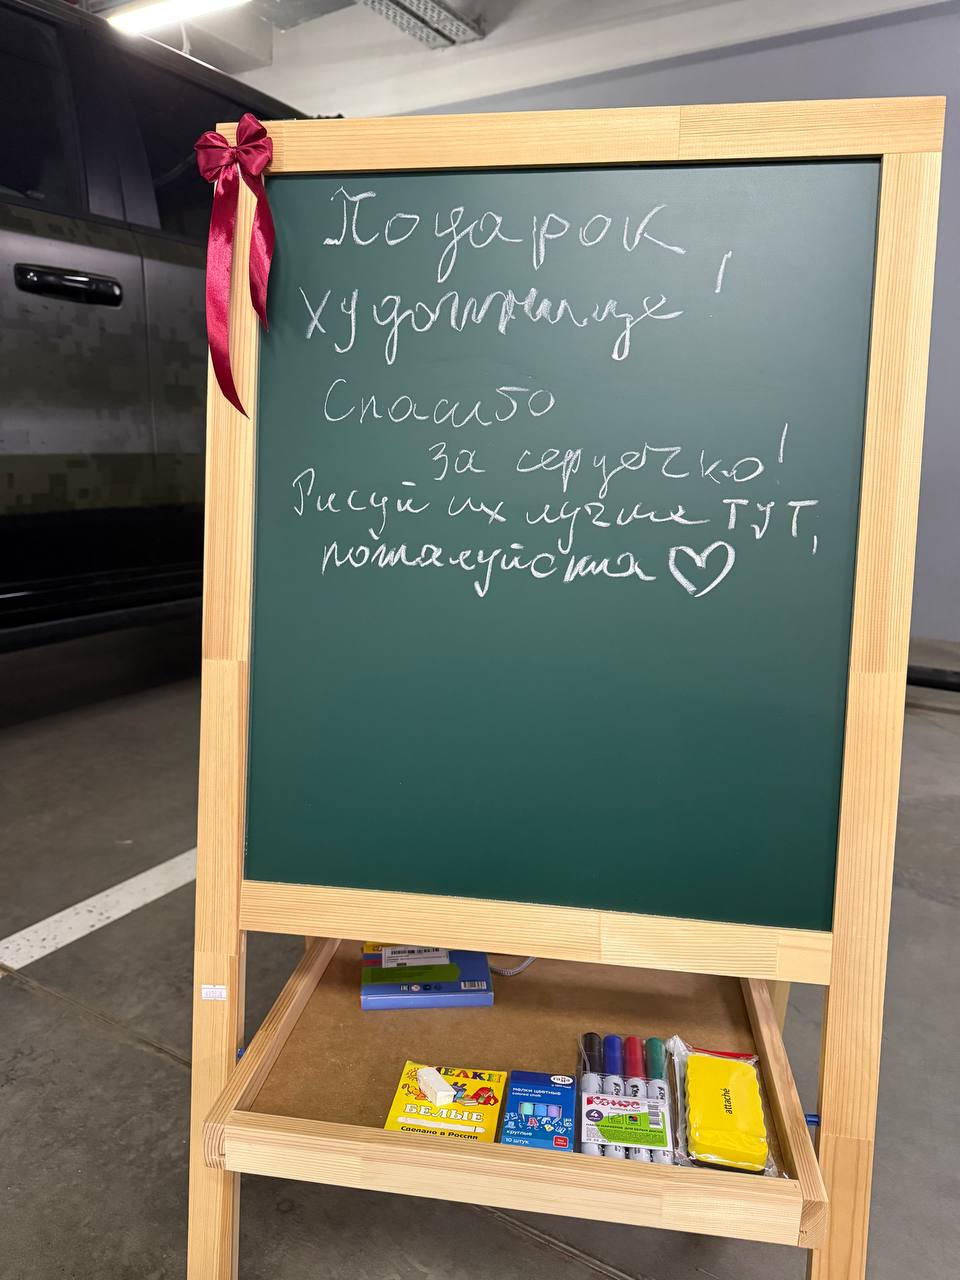 Подарок
художнице!
Спасибо
за сердечко!
Рисуй их лучше ТУТ,
пожалуйста
МЕЛКИ
БЕЛЫЕ
Сделано в России
гамма
мелки цветные
colored chalk
круглые
10 штук
Комус
4
attaché